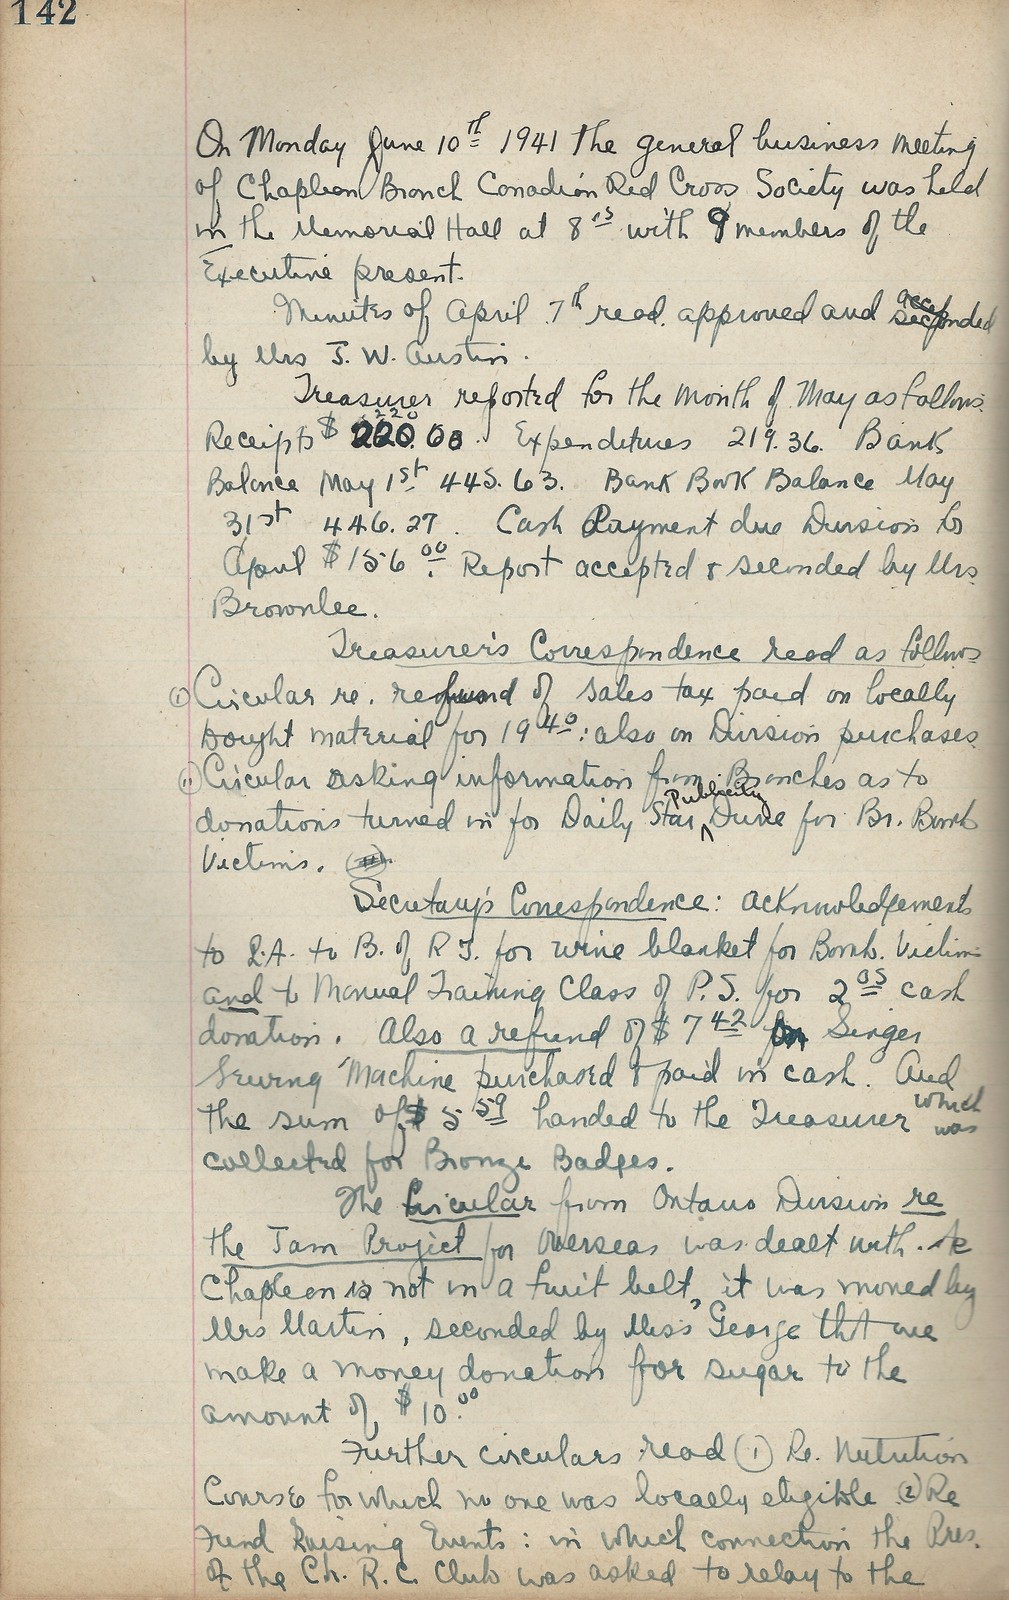 142
On Monday June 10th 1941 the general business meeting
of Chapleau Branch Canadian Red Cross Society was held
in the Memorial Hall at 8 15 with 9 members of the
Executive present.
Minutes of April 7th read, approved and seconded
by Mrs J. W. Austin.
Treasurer reported for the month of May as follows.
Receipts $ 220.00. Expenditures 219.36. Bank
Balance May 1st 445.63. Bank Book Balance May
31st 446.27. Cash Payment due Division to
April $156.00. Report accepted & seconded by Mrs
Brownlee.
Treasurer's Correspondence read as follows
(1) Circular re. refund of sales tax paid on locally
bought material for 1940: also on Division purchases.
(11) Circular asking information from Branches as to
donations turned in for Daily Star Publicity Drive for Br. Bomb
Victims.
Secretary's Correspondence: acknowledgements
to L.A. to B. of R T. for blanket for Bomb. Victims
and to Manual Training Class of P.S. for 2 05 cash
donation. Also a refund of $7 42 on Singer
Sewing Machine purchased & paid in cash. And
the sum of $5 59 handed to the Treasurer which was
collected for Bronze Badges.
The Circular from Ontario Division re
the Jam Project for Overseas was dealt with. As
Chapleau is not in a fruit belt, it was moved by
Mrs Martin, seconded by Miss George tht we
make a money donation for sugar to the
amount of $10.00
Further circulars read (1) Re. Nutrition
Course for which no one was locally eligible (2) Re
Fund Raising Events: in which connection the Pres.
of the Ch. R.C. Club was asked to relay to the